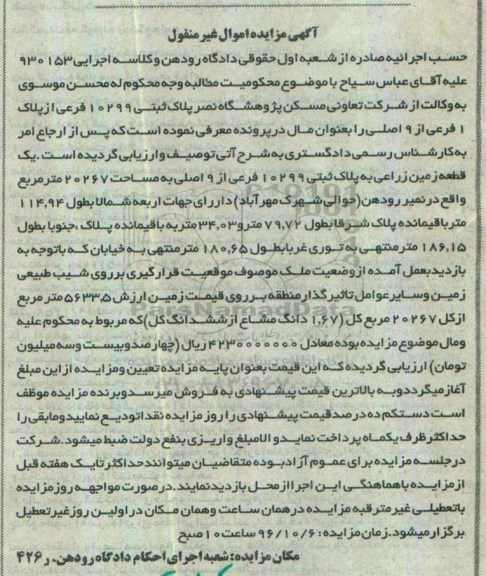 آگهی مزایده اموال غیر منقول
حسب اجرائیه صادره از شعبه اول حقوقی دادگاه رودهن و کلاسه اجرایی ۹۳۰۱۵۳
علیه آقای عباس سیاح با موضوع محکومیت مطالبه وجه محکوم له محسن موسوی
به وکالت از شرکت تعاونی مسکن پژوهشگاه نصر پلاک ثبتی ۱۰۲۹۹ فرعی از پلاک
۱ فرعی از ۹ اصلی را بعنوان مال در پرونده معرفی نموده است که پس از ارجاع امر
به کارشناس رسمی دادگستری به شرح آتی توصیف و ارزیابی گردیده است . یک
قطعه زمین زراعی به پلاک ثبتی ۱۰۲۹۹ فرعی از ۹ اصلی به مساحت ۲۰۲۶۷ متر مربع
واقع در نمیر رودهن (حوالی شهرک مهرآباد) دارای جهات اربعه شمالا بطول ۱۱۴,۹۴
متر باقیمانده پلاک شرقا بطول ۷۹,۷۲ متر و ۳۴,۰۳ متر به باقیمانده پلاک ، جنوبا بطول
۱۸۶,۱۵ متر منتهی به توری غربا بطول ۱۸۰,۶۵ متر منتهی به خیابان که با توجه به
بازدید بعمل آمده از وضعیت ملک موصوف موقعیت قرارگیری بر روی شیب طبیعی
زمین و سایر عوامل تاثیر گذار منطقه بر روی قیمت زمین ارزش ۵۶۳۳,۵ متر مربع
از کل ۲۰۲۶۷ مربع کل (۱,۶۷ دانگ مشاع از ششدانگ کل) که مربوط به محکوم علیه
و مال موضوع مزایده بوده معادل ۴۲۳۰۰۰۰۰۰۰ ریال (چهارصد و بیست و سه میلیون
تومان) ارزیابی گردیده که این قیمت بعنوان پایه مزایده تعیین و مزایده از این مبلغ
آغاز میگردد و به بالاترین قیمت پیشنهادی به فروش میرسد و برنده مزایده موظف
است دستکم ده درصد قیمت پیشنهادی را روز مزایده نقدا تودیع نماید و مابقی را
حداکثر ظرف یکماه پرداخت نماید و الا مبلغ واریزی بنفع دولت ضبط میشود . شرکت
در جلسه مزایده برای عموم آزاد بوده متقاضیان میتوانند حداکثر تا یک هفته قبل
از مزایده با هماهنگی این اجرا از محل بازدید نمایند . در صورت مواجهه روز مزایده
با تعطیلی غیر مترقبه مزایده در همان ساعت و همان مکان در اولین روز غیر تعطیل
برگزار میشود . زمان مزایده : ۹۶/۱۰/۶ ساعت ۱۰ صبح
مکان مزایده : شعبه اجرای احکام دادگاه رودهن . ر ۴۲۶